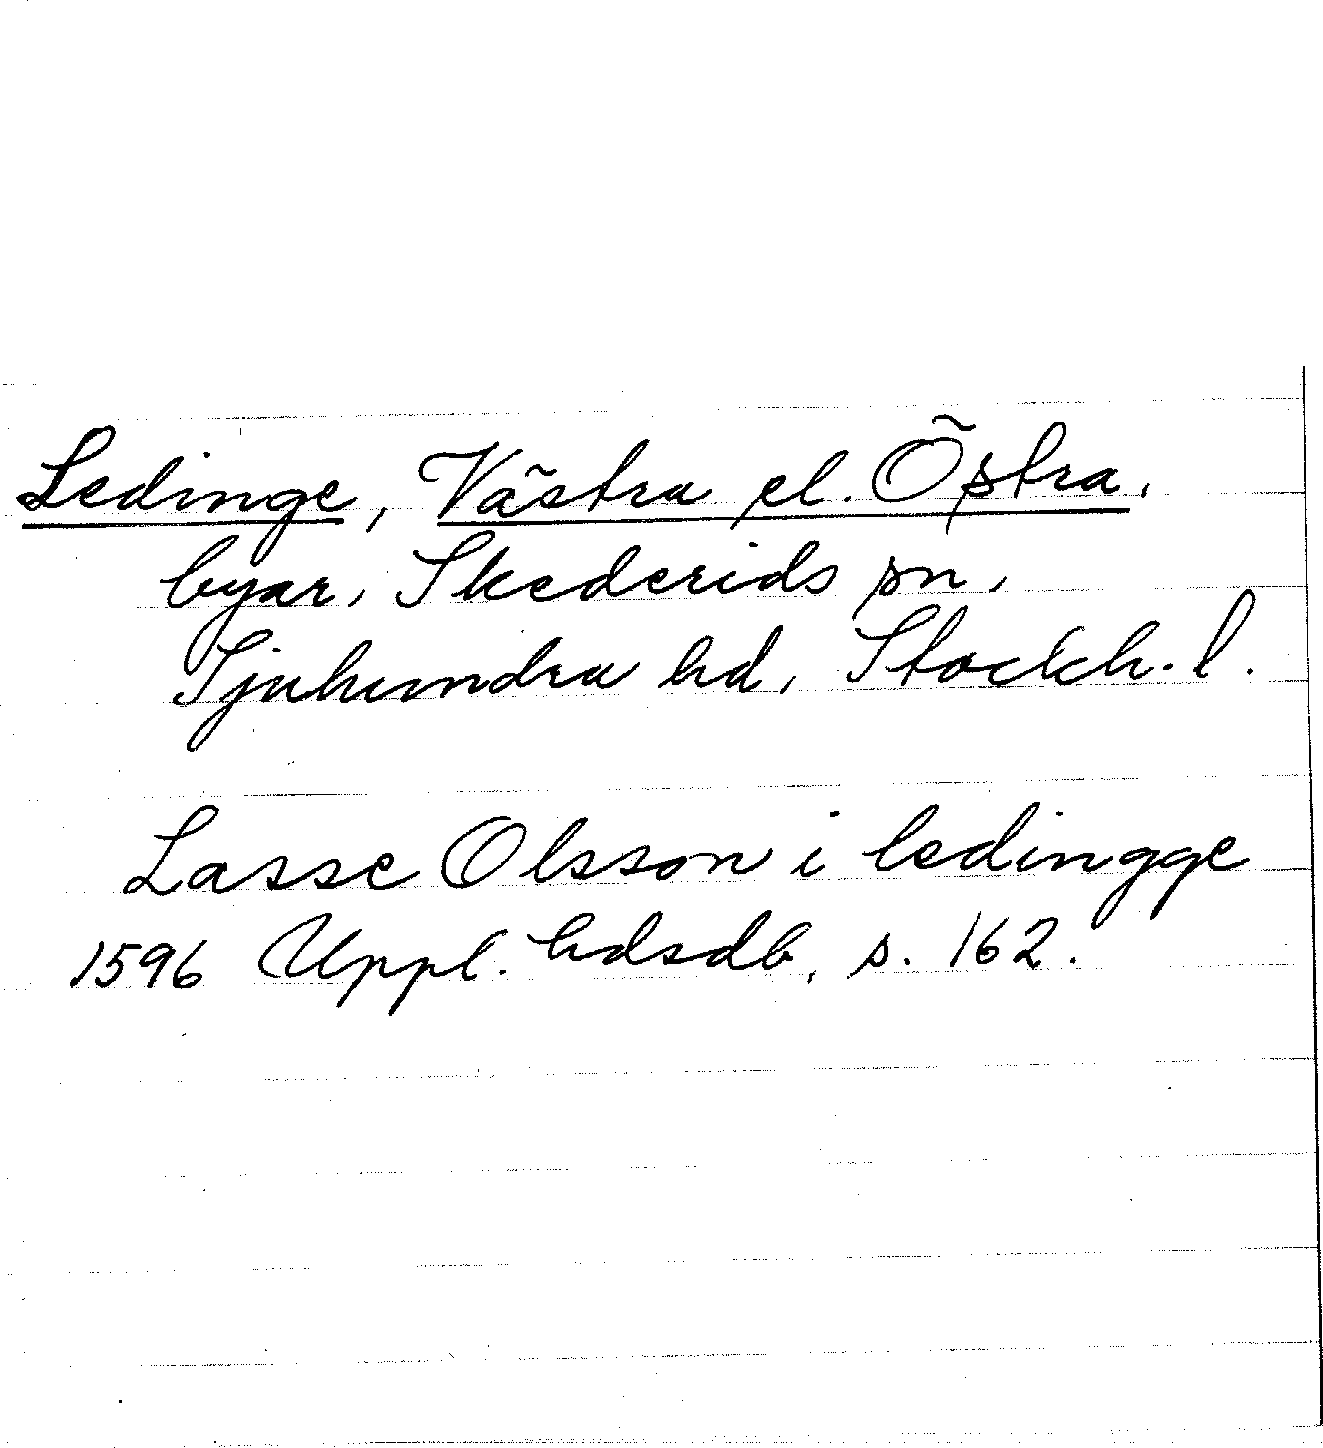 Ledinge, Västra el. Östra,
byar, Skederids sn,
Sjuhundra hd, Stockh. l.
Lasse Olsson i ledingge
1596 Uppl. hdsdb, s. 162.